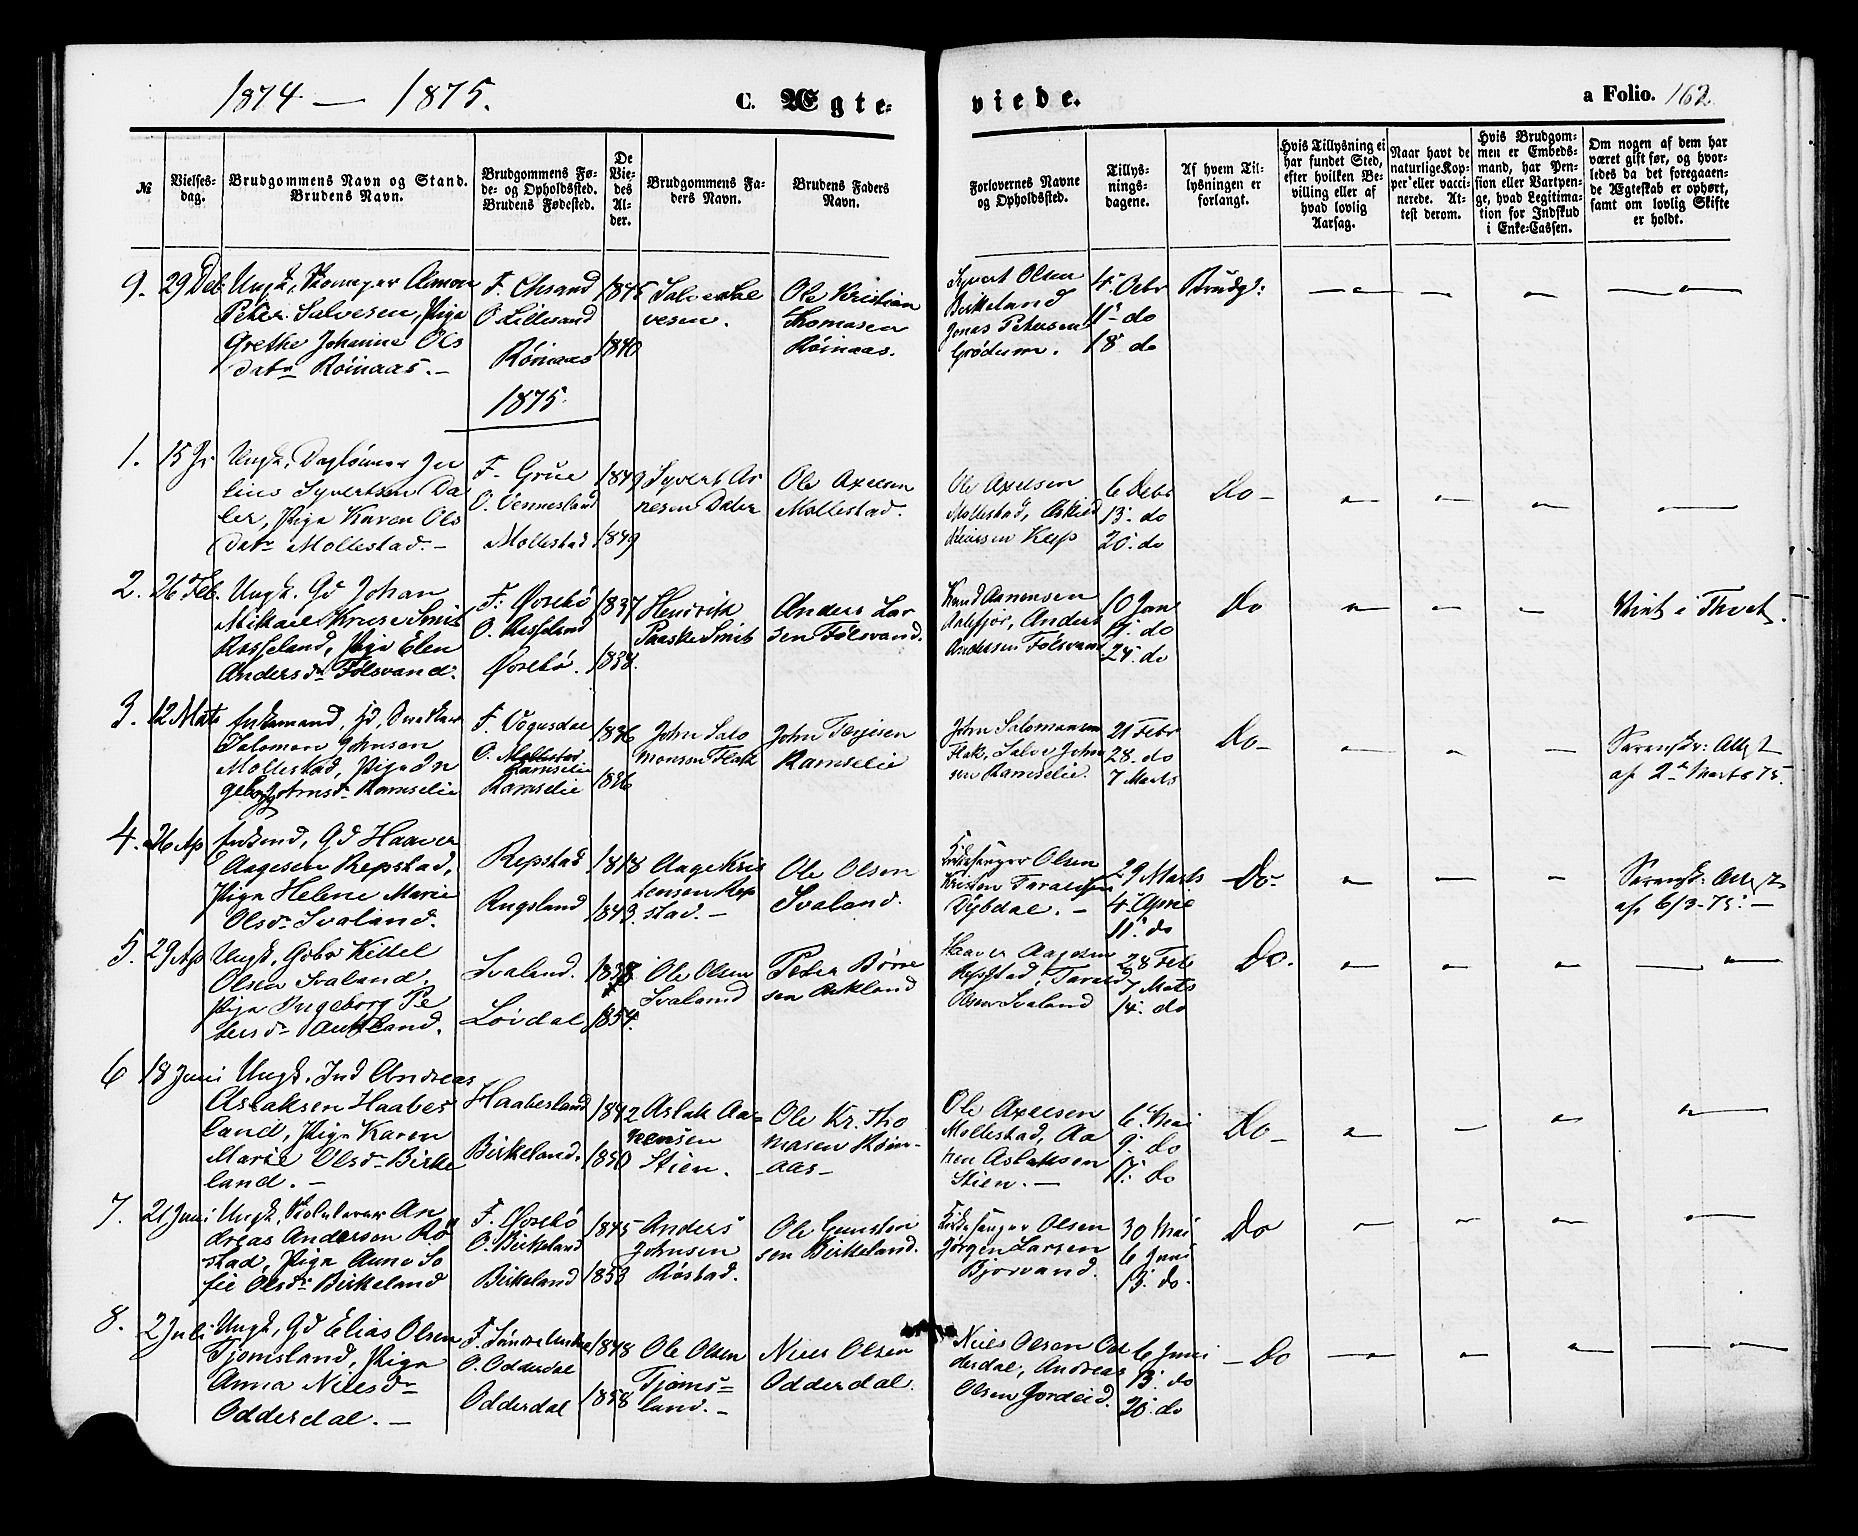 1874 — 1875.
C. Ægte-
viede.
a Folio. 162
№
Vielses-
dag.
Brudgommens Navn og Stand.
Brudens Navn.
Brudgommens Fø-
de- og Opholdssted.
Brudens Fødested.
De
Vie-
des
Al-
der.
Brudgommens Fa-
ders Navn.
Brudens Faders
Navn.
Forlovernes Navne
og Opholdssted.
Tillys-
nings-
dagene.
Af hvem Til-
lysningen er
forlangt.
Hvis Tillysning ei
har fundet Sted,
efter hvilken Be-
villing eller af
hvad lovlig
Aarsag.
Naar havt de
naturlige Kop-
per eller vacci-
nerede. At-
test derom.
Hvis Brudgom-
men er Embeds-
mand, har Pen-
sion eller Vartpen-
ge, hvad Legitima-
tion for Indskud
i Enke-Cassen.
Om nogen af dem har
været gift før, og hvor-
ledes da det foregaaen-
de Ægteskab er ophørt,
samt om lovlig Skifte
er holdt.
9.
29 Deb
Ungk,
Peter Salvesen, Pige
Grethe Johanne Ols
datr Röinaas. —
F. Chsand
O. Lillesand
Röinaas
1845
1840
Salve Sal
vesen.
Ole Kristian
Thomasen
Röinaas.
Syvert Olsen
Birkeland
Jonas Petersen
Grödum.
4. Oebr
11. do
18 do
Brudg:
1875.
1.
15 Jr
Ungk,
Syvertsen Da
ler, Pige Karen Ols
datr Mollestad. —
F. Grue
O. Vennesland
Mollestad
1849
1849
Syvert Ar
nesen Daler
Ole Axelsen
Mollestad.
Ole Axelsen
Mollestad,
Keip
6 Debr
13. do
20. do
Do —
2.
26 Feb.
Ungk. Gd Johan
Mikael Kruse Smit
Rosseland, Pige Elen
Andersdr Fölsvand.
F. Övrebö
O. Rosseland
Övrebö.
1837
1838.
Henrik
Paaske Smit
Anders Lar
sen Fölsvand.
Knud Aanensen
Anders
Andersen Fölsvand
10 Jan
do
24. do
Do
Viet i Thvet.
3.
12 Mats
Enkemand, Gd,
Salomon Johnsen
Mollestad, Pige In
geborg Johnsdr Ramselie
F. Vogusdal
O. Mollestad
Ramselie
Ramselie
1836
1836
John Salo
monsen Flak
John Terjesen
Ramselie
John Salomonsen
Flak, Salve John
sen Ramselie.
21 Febr
28. do
7 Marts
Do —
Sorenskr: Attest
af 2den Marts 75.
4.
26 Ap
Enkemd, Gd Haaver
Aagesen Repstad,
Pige Helene Marie
Olsdr Ivaland.
Repstad
Rugsland
1818
1843.
Aage Kris
tensen Rep
stad. —
Ole Olsen
Ivaland.
Kirkesanger Olsen
Kristen Taraldsen
Dybdal. —
29 Marts
4. April
11. do
Do —
Sorensk: Attest
af 6/3 - 75. —
5.
29 Ap
Ungk, Gbr Kittel
Olsen Ivaland.
Pige Ingeborg Pe
tersdr Aukland.
Ivaland.
Löidal
1838
1854.
Ole Olsen
Ivaland
Peter Börre
sen Aukland
Haaver Aagesen
Repstad, Tarald
Olsen Ivaland
28 Feb
7 Mats
14. do
Do.
6
18 Juni
Ungk, Ind Andreas
Aslaksen Haabes
land, Pige Karen
Marie Olsdr Birke
land. —
Haabesland
Birkeland.
1842
1850
Aslak Aa-
nensen
Stien.
Ole Kr. Tho
masen Röin-
aas —
Ole Axelsen
Mollestad, Aa
nen Aslaksen
Stien. —
6. Mai
9. do
17. do
Do —
7.
21 Juni
Ungk, Skolelærer An
dreas Andersen Rö
stad, Pige Anne So
fie Olsdr Birkeland
F. Övrebö
O. Birkeland
Birkeland
1845
1853
Anders
Johnsen
Röstad.
Ole Gunsten
sen Birkeland.
Kirkesanger Olsen
Jörgen Larsen
Bjorvand.
30 Mai
6 Juni
13. do.
Do
8.
2 Juli
Ungk, Gd Elias Olsen
Tjomsland, Pige
Anna Nilsdr
Odderdal. —
F. Söndre Undal
O. Odderdal
Odderdal
1848
1858
Ole Olsen
Tjoms-
land. —
Niels Olsen
Odderdal.
Niels Olsen Od
derdal, Andreas
Olsen Jordeid.
6 Juni
13. do
20. do
— Do